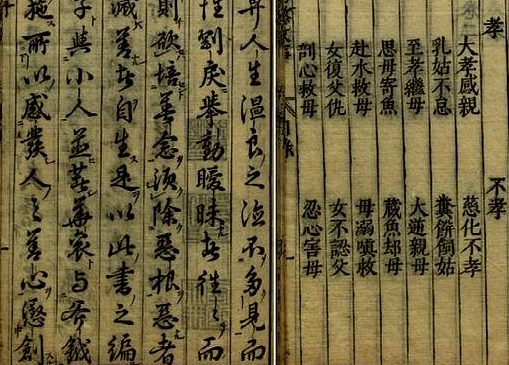 孝 不孝
大孝感親 慈化不孝
乳姑不怠 糞餅飼姑
至孝繼母 大逆親母
思母寄魚 藏魚却母
赴水救母 母溺嗔救
女復父仇 女不認父
剖心救母 忍心害母
人生溫良之 不多見而
性 戾舉動曖昧者徃々而
則欲培善念須除惡根惡者
滅善者自生是以此書之編
子與小人並 華袞与斧鉞
施所以感發人之善心懲創